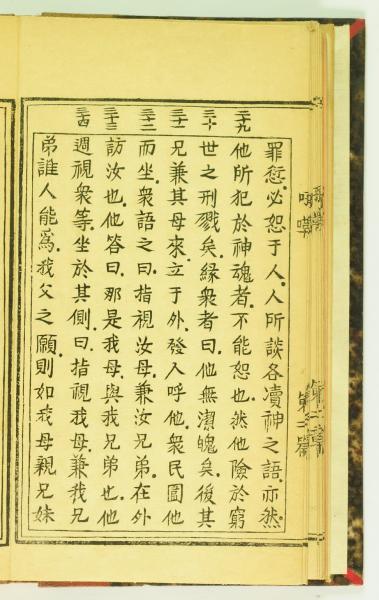 罪愆必恕于人人所談各瀆神之語亦然
二十九
他所犯於神魂者不能恕也然他險於窮
三十
世之刑戮矣緣衆者曰他無潔魄矣後其
三十一
兄兼其母來立于外發人呼他衆民圍他
三十二
而坐衆語之曰指視汝母兼汝兄弟在外
三十三
訪汝也他答曰那是我母與我兄弟也他
三十四
週視衆等坐於其側曰指視我母兼我兄
弟誰人能爲我父之願則如我母親兄妹